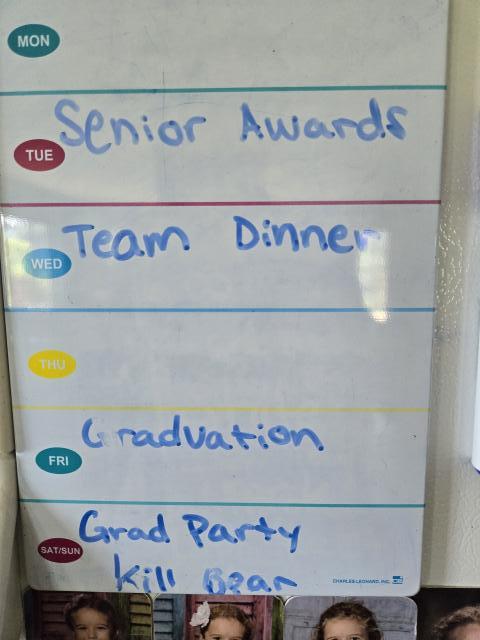 MON
Senior Awards
TUE
Team Dinner
WED
THU
Graduation
FRI
Grad Party
SAT/SUN
Kill Bear
CHARLES LEONARD, INC.